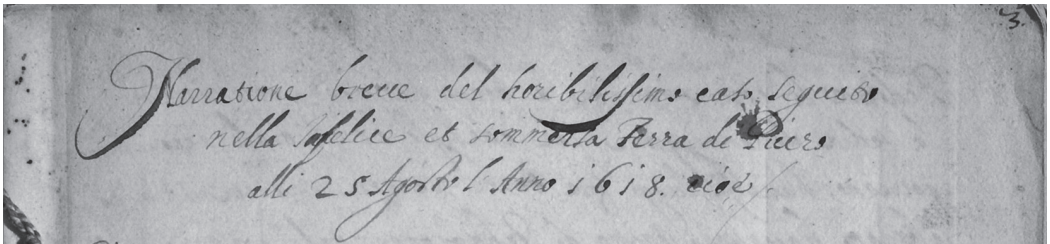 3.
Narratione breue del horibilissimo caso seguito
nella Infelice et sommersa Terra di Piuro
alli 25 Agosto l'Anno 1618. cioè